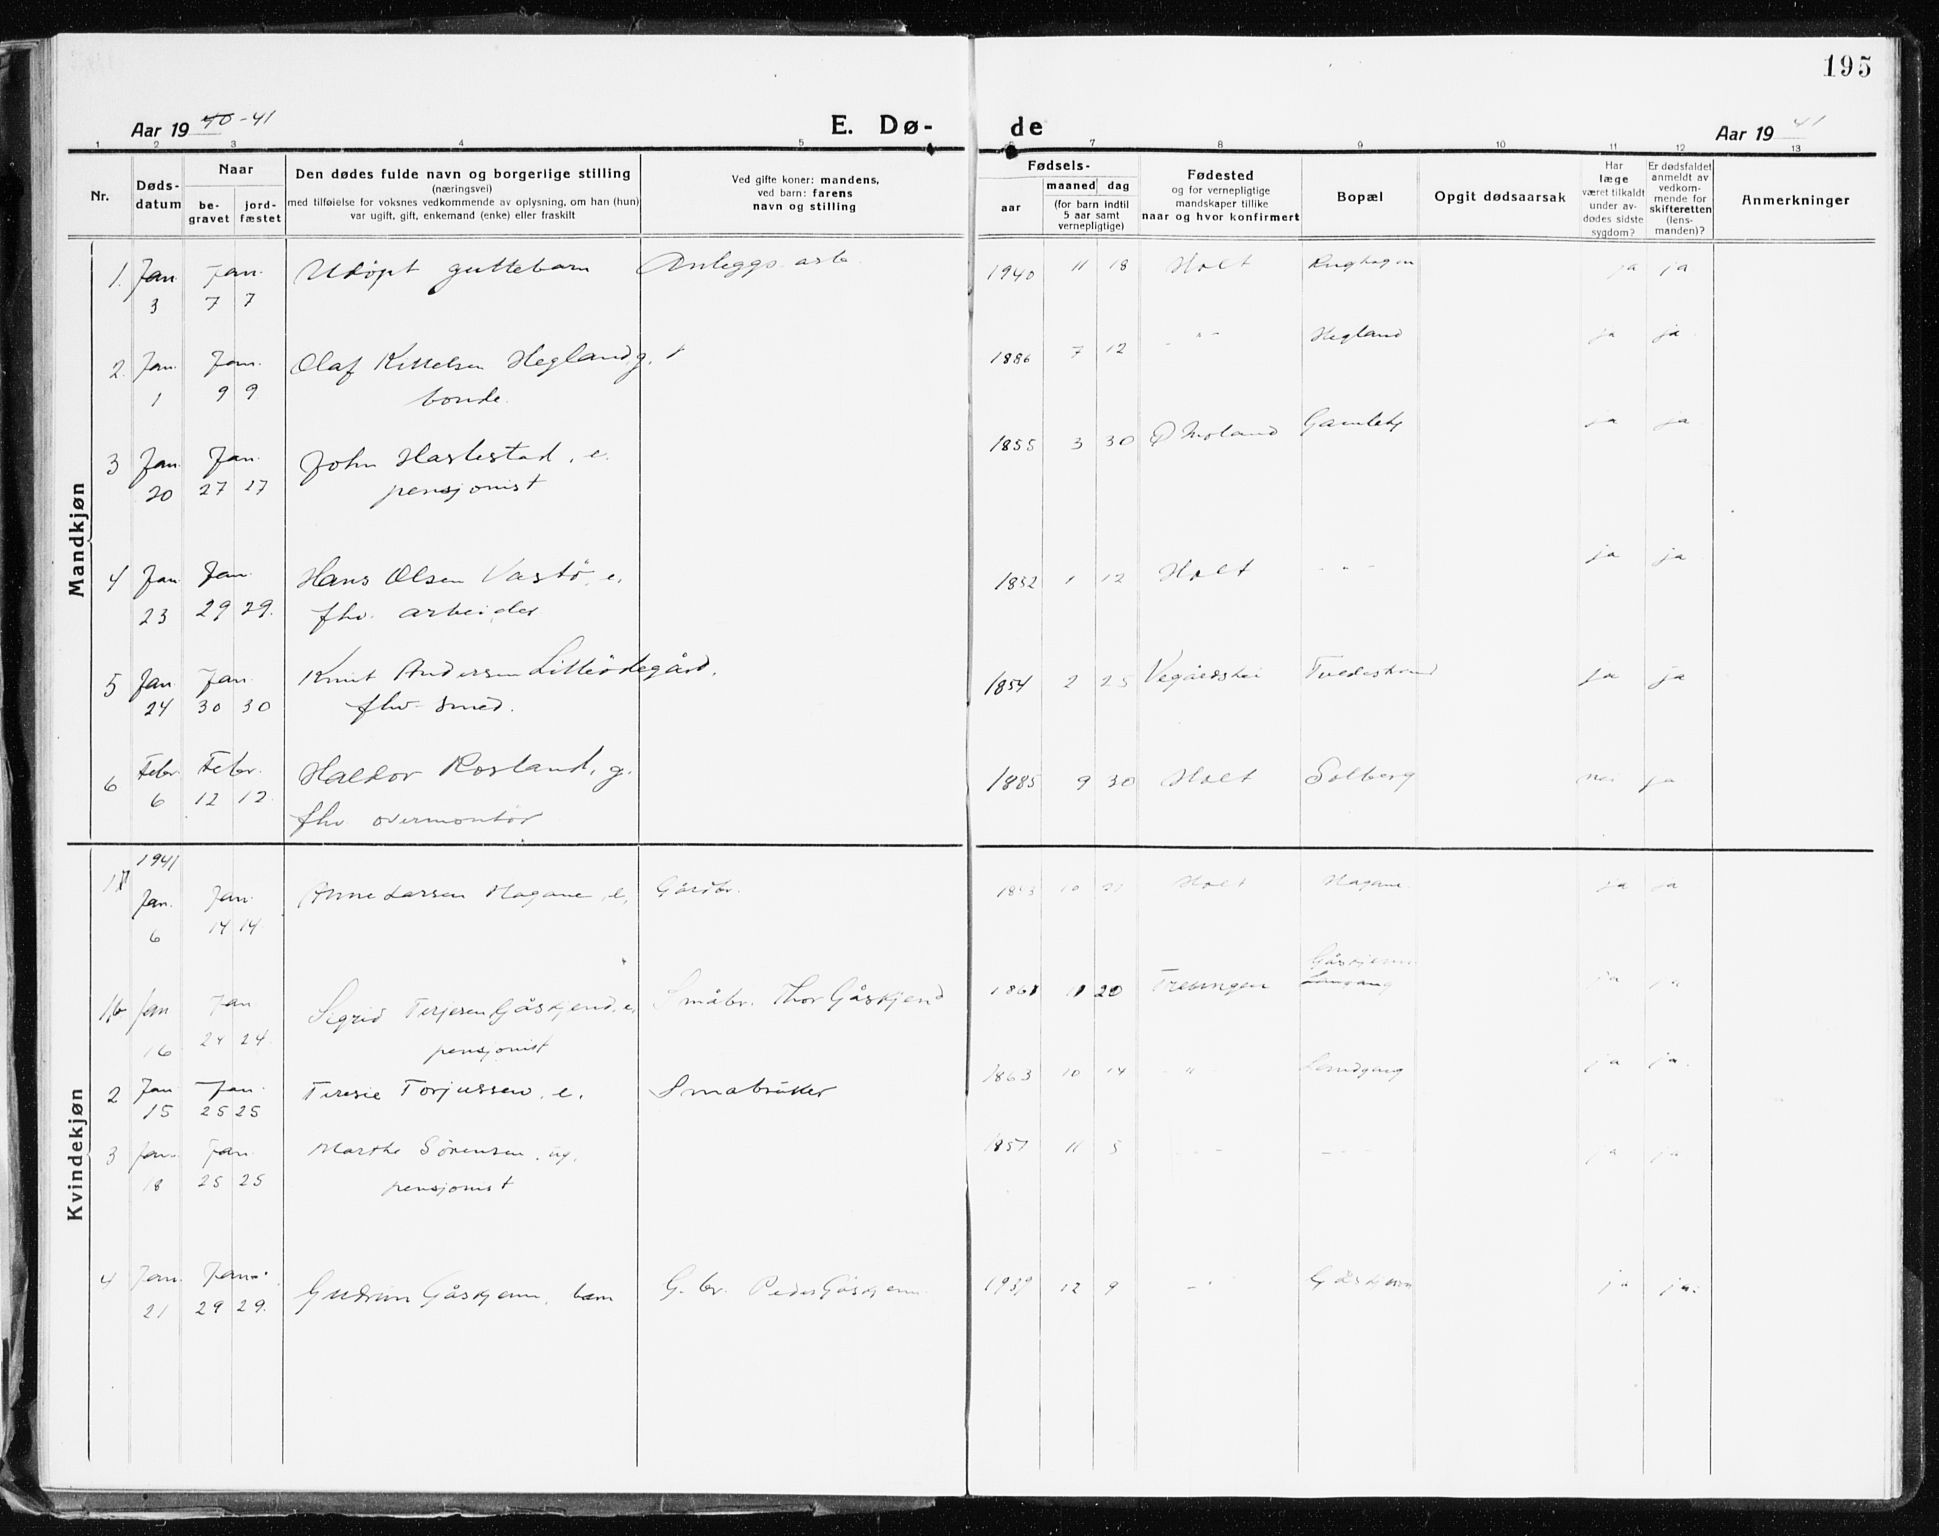 195
Aar 19 40-41
E. Dø-
de
Aar 19 41
1 2 3 4 5 6 7 8 9 10 11 12 13
Nr.
Døds-
datum
Naar
be-
gravet
jord-
fæstet
Den dødes fulde navn og borgerlige stilling
(næringsvei)
med tilføielse for voksnes vedkommende av oplysning, om han (hun)
var ugift, gift, enkemand (enke) eller fraskilt
Ved gifte koner: mandens,
ved barn: farens
navn og stilling
Fødsels-
aar
maaned
dag
(for barn indtil
5 aar samt
vernepligtige)
Fødested
og for vernepligtige
mandskaper tillike
naar og hvor konfirmert
Bopæl
Opgit dødsaarsak
Har
læge
været tilkaldt
under av-
dødes sidste
sygdom?
Er dødsfaldet
anmeldt av
vedkom-
mende for
skifteretten
(lens-
manden)?
Anmerkninger
Mandkjøn
1. Jan. Jan. Udöpt guttebarn Anleggs.arb. 1940 11 18 Holt ja ja
3 7 7
2. Jan. Jan. Olaf Kittelsen Hegland, g. 1886 7 12 - " - Hegland ja ja
1 9 9 bonde.
3 Jan. Jan. John Haslestad, e. 1855 3 30 Ø Moland ja ja
20 27 27 pensjonist
4 Jan. Jan. Hans Olsen Vastö, e. 1852 1 12 Holt - " - ja ja
23 29 29. fhv. arbeider
5 Jan Jan. Knut Andersen Lilleödegård. 1854 2 25 Vegårdshei Tvedestrand ja ja
24 30 30 fhv. smed.
6 Febr. Febr. Haldor Rosland, g. 1885 9 30 Holt Solberg nei ja
6 12 12. fhv overmontör
Kvindekjøn
1941
1 Jan. Jan. Anne Larsen Hagane, e. Gårdbr. 1853 10 Holt Hagane ja ja
6 14 14
Gåskjenn
1b Jan Jan Sigrid Terjesen Gåskjend, e. Småbr. Thor Gåskjend 1861 11 20 Treungen ja ja
16 24 24. pensjonist
2 Jan Jan. Terese Torjussen, e. Småbruker 1863 10 14 - " - Landgang ja ja.
15 25 25
3 Jan. Jan. Marthe Sörensen, ug. 1857 11 5 - " - - " - ja ja
18 25 25 pensjonist
4 Jan. Jan. Gudrun Gåskjenn, barn G.br. Peder Gåskjenn 1939 12 9 - " - Gåskjenn ja ja.
21 29 29.